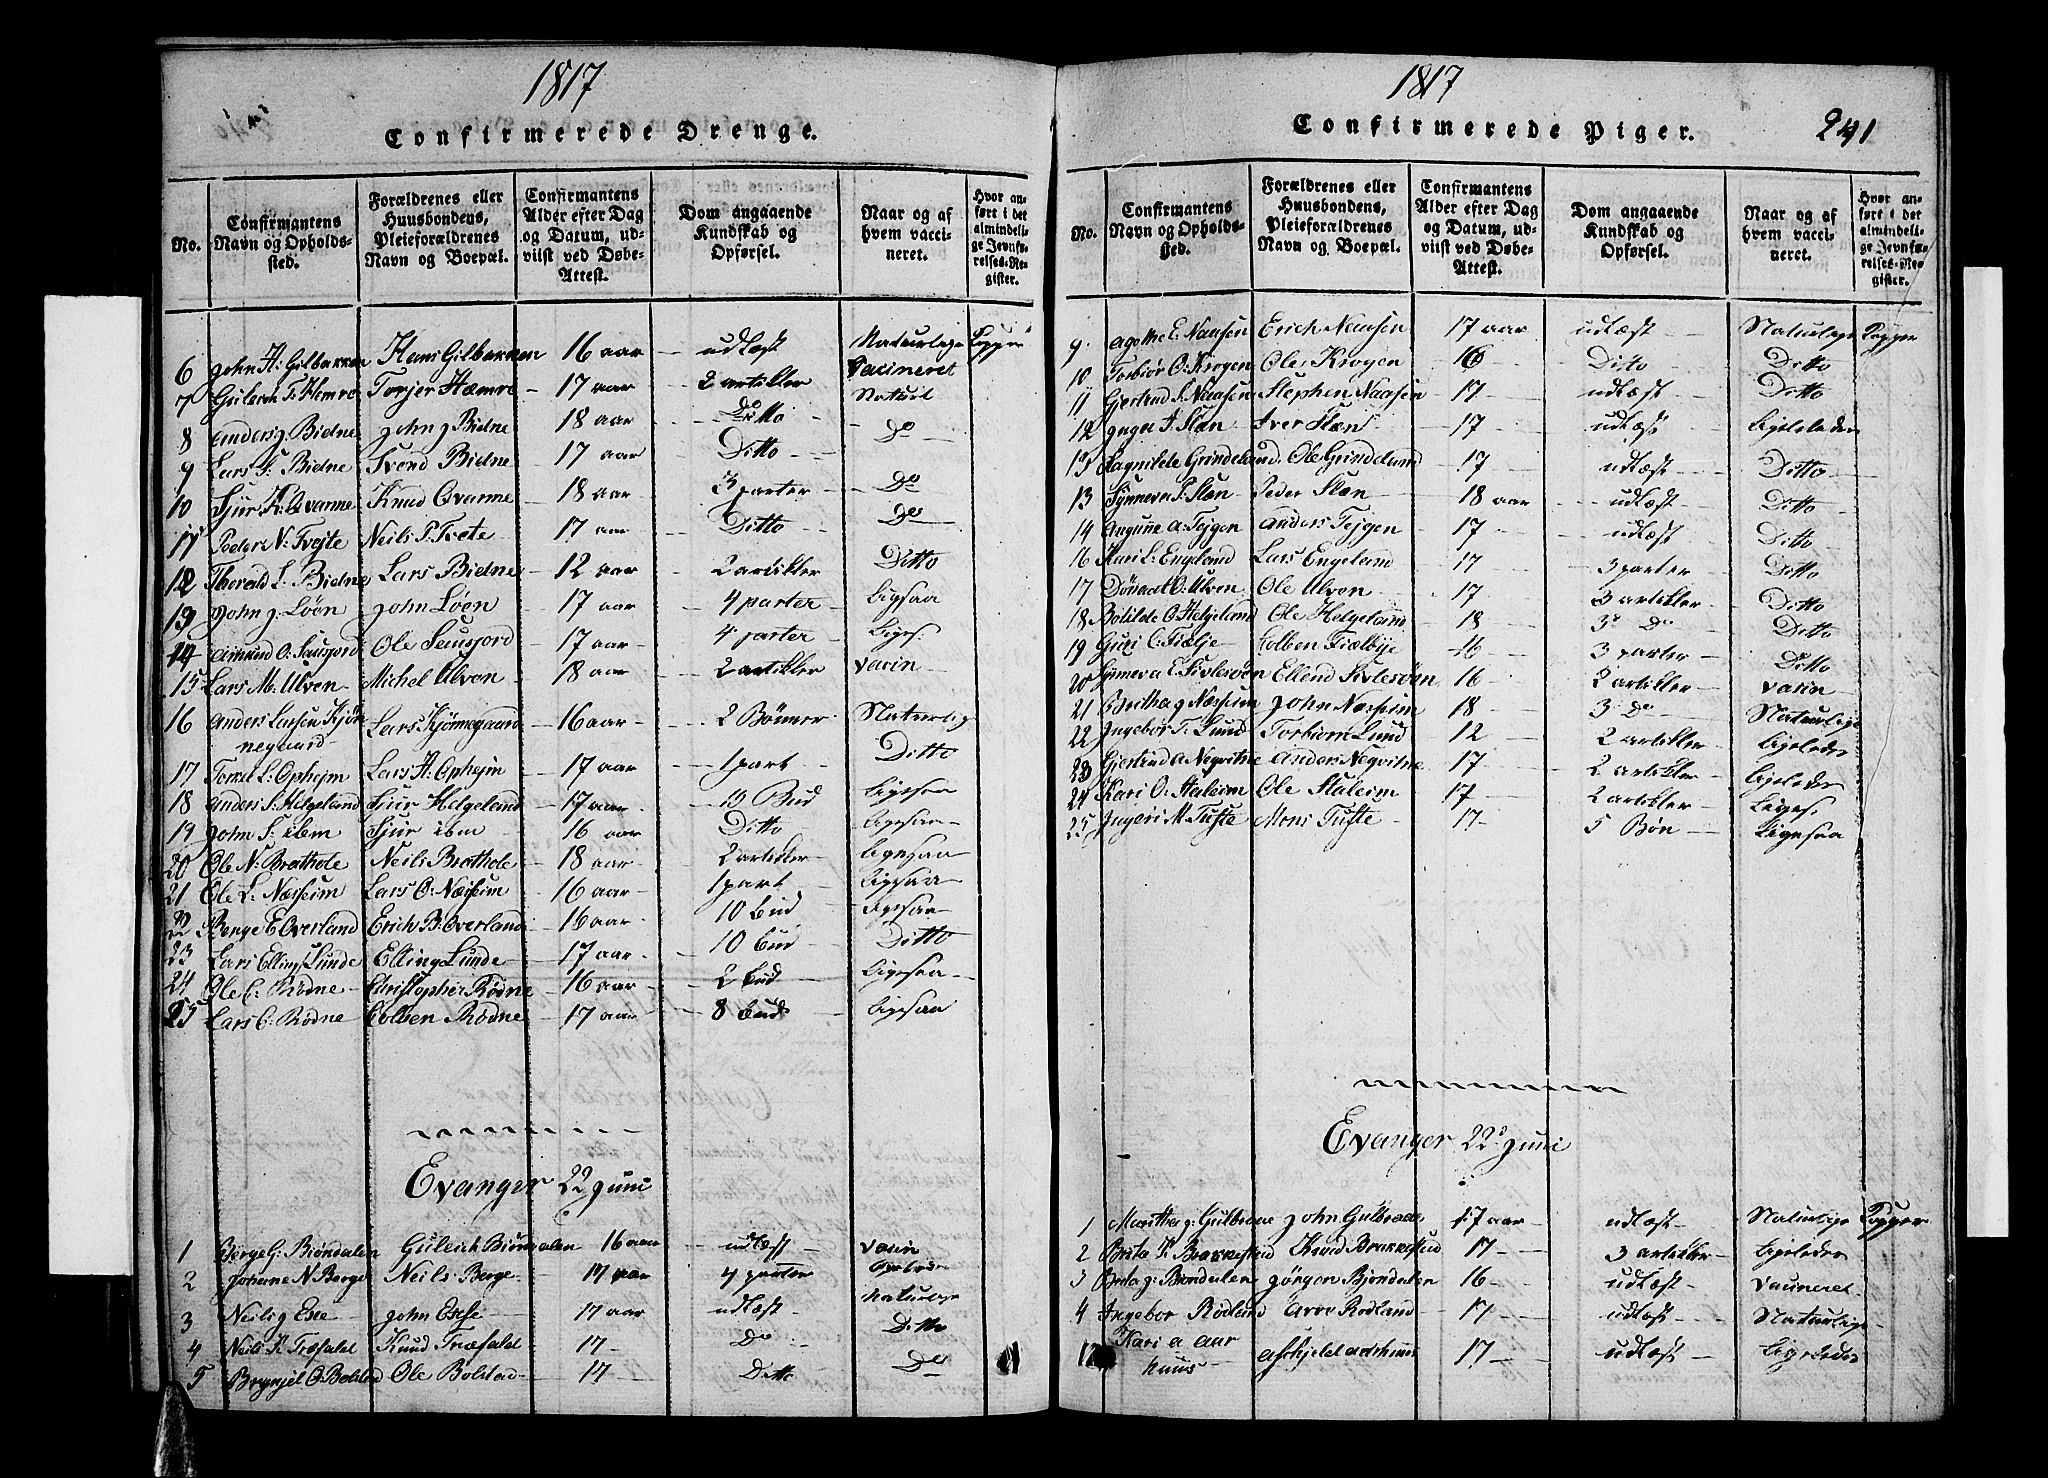 1817
Confirmerede Drenge.
No.
Confirmantens Navn og Opholdssted.
Forældrenes eller Huusbondens, Pleieforældrenes Navn og Boepæl.
Confirmantens Alder efter Dag og Datum, udviist ved Døbe-Attest.
Dom angaaende Kundskab og Opførsel.
Naar og af hvem vaccineret.
Hvor anført i det almindelige Jevnførelses-Register.
6 John H: Gilbakken Hans Gilbakken 16 aar udlæst Naturlige Kopper
7 T: Hæmre Torjer Hæmre 17 aar 2 artikler Vacineret
8 Anders J. Bidne John J Bidne 18 aar Ditto Naturl
9 Lars S. Bidne Svend Bidne 17 aar Ditto Do
10 Sjur K: Qvarme Knud Qvarme 18 aar 3 parter Do
11 Peder N: Tvejte Neils P. Tvete 17 aar Ditto Do
12 L: Bidne Lars Bidne 12 aar 2 artikler Ditto
13 John J. Løen John Løen 17 aar 4 parter Ligesaa
14 Amund O: Sausjord Ole Seusjord 17 aar 4 parter Liges:
15 Lars M. Ulven Michel Ulven 18 aar 2 artikler Vacin
16 Anders Larsen Kjønnegaard Lars Kjønnegaard 16 aar 2 Bønner Naturlig
17 L: Ophejm Lars H: Ophejm 17 aar 1 part Ditto
18 Anders S. Helgeland Sjur Helgeland 17 aar Bud Ligesaa
19 John S: ibm Sjur ibm 16 aar Ditto Ligesaa
20 Ole N: Brathole Neils Brathole 18 aar 2 artikler Ligesaa
21 Ole L: Næsheim Lars O: Næsheim 16 aar 1 part Ligesaa
22 Benge E Overland Erich B. Overland 16 aar 10 bud Ligesaa
23 Lars Ellings Lunde Elling Lunde 17 aar 10 bud Ditto
24 Ole C: Rødne Christopher Rødne 16 aar 2 bud Ligesaa
25 Lars C: Rødne Colben Rødne 17 aar 8 bud Ligesaa
Evanger 22 Juni
1 Børge G: Biøndalen Biøndalen 16 aar udlæst Vacin
2 Johanne N Berge Neils Berge 17 aar 4 parter
3 Neil J Exe John Exse 17 aar udlæst Naturlige
4 Neils K Træfald Knud Træfald 17 Do Ditto
5 Brynjel O Bolstad Ole Bolstad 17 Ditto Do
1817
Confirmerede Piger.
241
No.
Confirmantens Navn og Opholdssted.
Forældrenes eller Huusbondens, Pleieforældrenes Navn og Boepæl.
Confirmantens Alder efter Dag og Datum, udviist ved Døbe-Attest.
Dom angaaende Kundskab og Opførsel.
Naar og af hvem vaccineret.
Hvor anført i det almindelige Jevnførelses-Register.
9. Agothe E. Naasen Erich Naasen 17 aar udlæst Naturlige Kopper
10 Torbiør O: Krogen Ole Krogen 16 Ditto Ditto
11 Gjertrud S. Naasen Stephen Naasen 17 udlæst Ditto
12 Inger I. Slæn Iver Slæn 17 udlæst Ligeledes
13 Ragnilde Grindeland Ole Grindeland 17 udlæst Ditto
13 Synneva P. Slæn Peder Slæn 18 aar udlæst Ditto
14 A: Tejgen Anders Tejgen 17 udlæst Ditto
16 Kari L. Engeland Lars Engeland 17 3 parter Ditto
17 O: Ulven Ole Ulven 17 3 artikler Ditto
18 Botilde O Helgeland Ole Helgeland 18 3 Do Ditto
19 Guri C: Fiælje Colben 16 3 parter Ditto
20 Synneva E Sivlesøen Ellend Sivlesøen 16 2 artikler Vacin
21 Britha J Næsheim John Næsheim 18 3 Do Naturlige
22 Ingebor T: Lund Torbiørn Lund 12 2 artikler Ligeledes
23 Gjertrud A Nøgvitne Anders Nøgvitne 17 2 artikler Ligeledes
24 Kari O. Staleim Ole Staleim 17 2 artikler Liges.
25 Ingeri M. Tufte Mons Tufte 17 5 Bøn Ligesaa
Evanger 22 Juni
1 Maritha J: Gulbraae John Gulbraae 17 aar udlæst Naturlige Kopper
2 Brita K Brakkestad Knud Brakkestad 17 3 artikler Ligeledes
3 Brita J: Biøndalen Jørgen Bjøndalen 16 udlæst Vacineret
4 Ingebor Rødland Arve Rødland 17 udlæst Naturlige
Kari A Aarhuus Aschjeld Aarhuus 17 udlæst Ligeledes